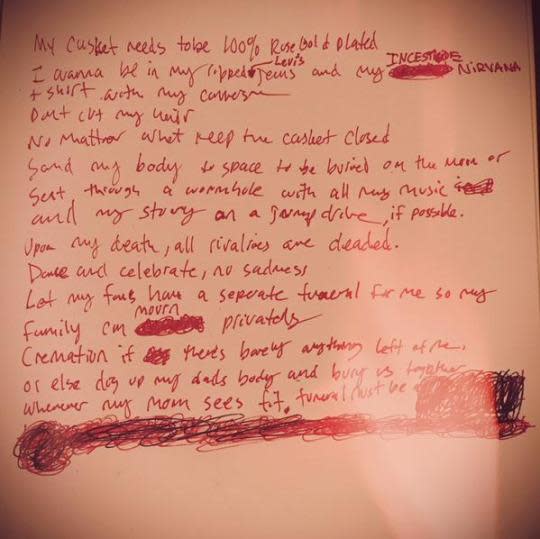 My casket needs to be 100% Rose Gold plated
I wanna be in my ripped Levi's jeans and my INCESTICIDE NIRVANA
t shirt with my converse
Dont cut my hair
No matter what keep the casket closed
Send my body to space to be buried on the moon or
sent through a wormhole with all my music
and my story on a jump drive, if possible.
Upon my death, all rivalries are deaded.
Dance and celebrate, no sadness
Let my fans have a seperate funeral for me so my
family can mourn privately
Cremation if theres barely anything left of me.
or else dig up my dads body and bury us together
whenever my mom sees fit. funeral must be a